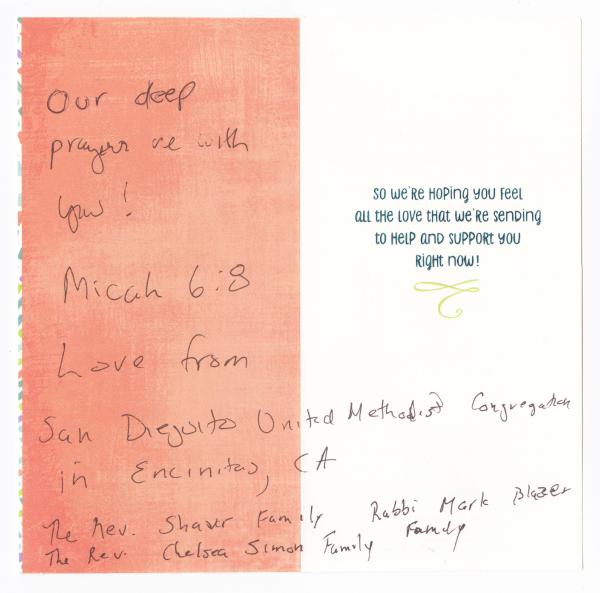 Our deep
prayers are with
you!
Micah 6:8
Love from
San Dieguito United Methodist Congregation
in Encinitas, CA
The Rev. Shaver Family Rabbi Mark Blazer
The Rev. Chelsea Simon Family Family
SO WE'RE HOPING YOU FEEL
ALL THE LOVE THAT WE'RE SENDING
TO HELP AND SUPPORT YOU
RIGHT NOW!